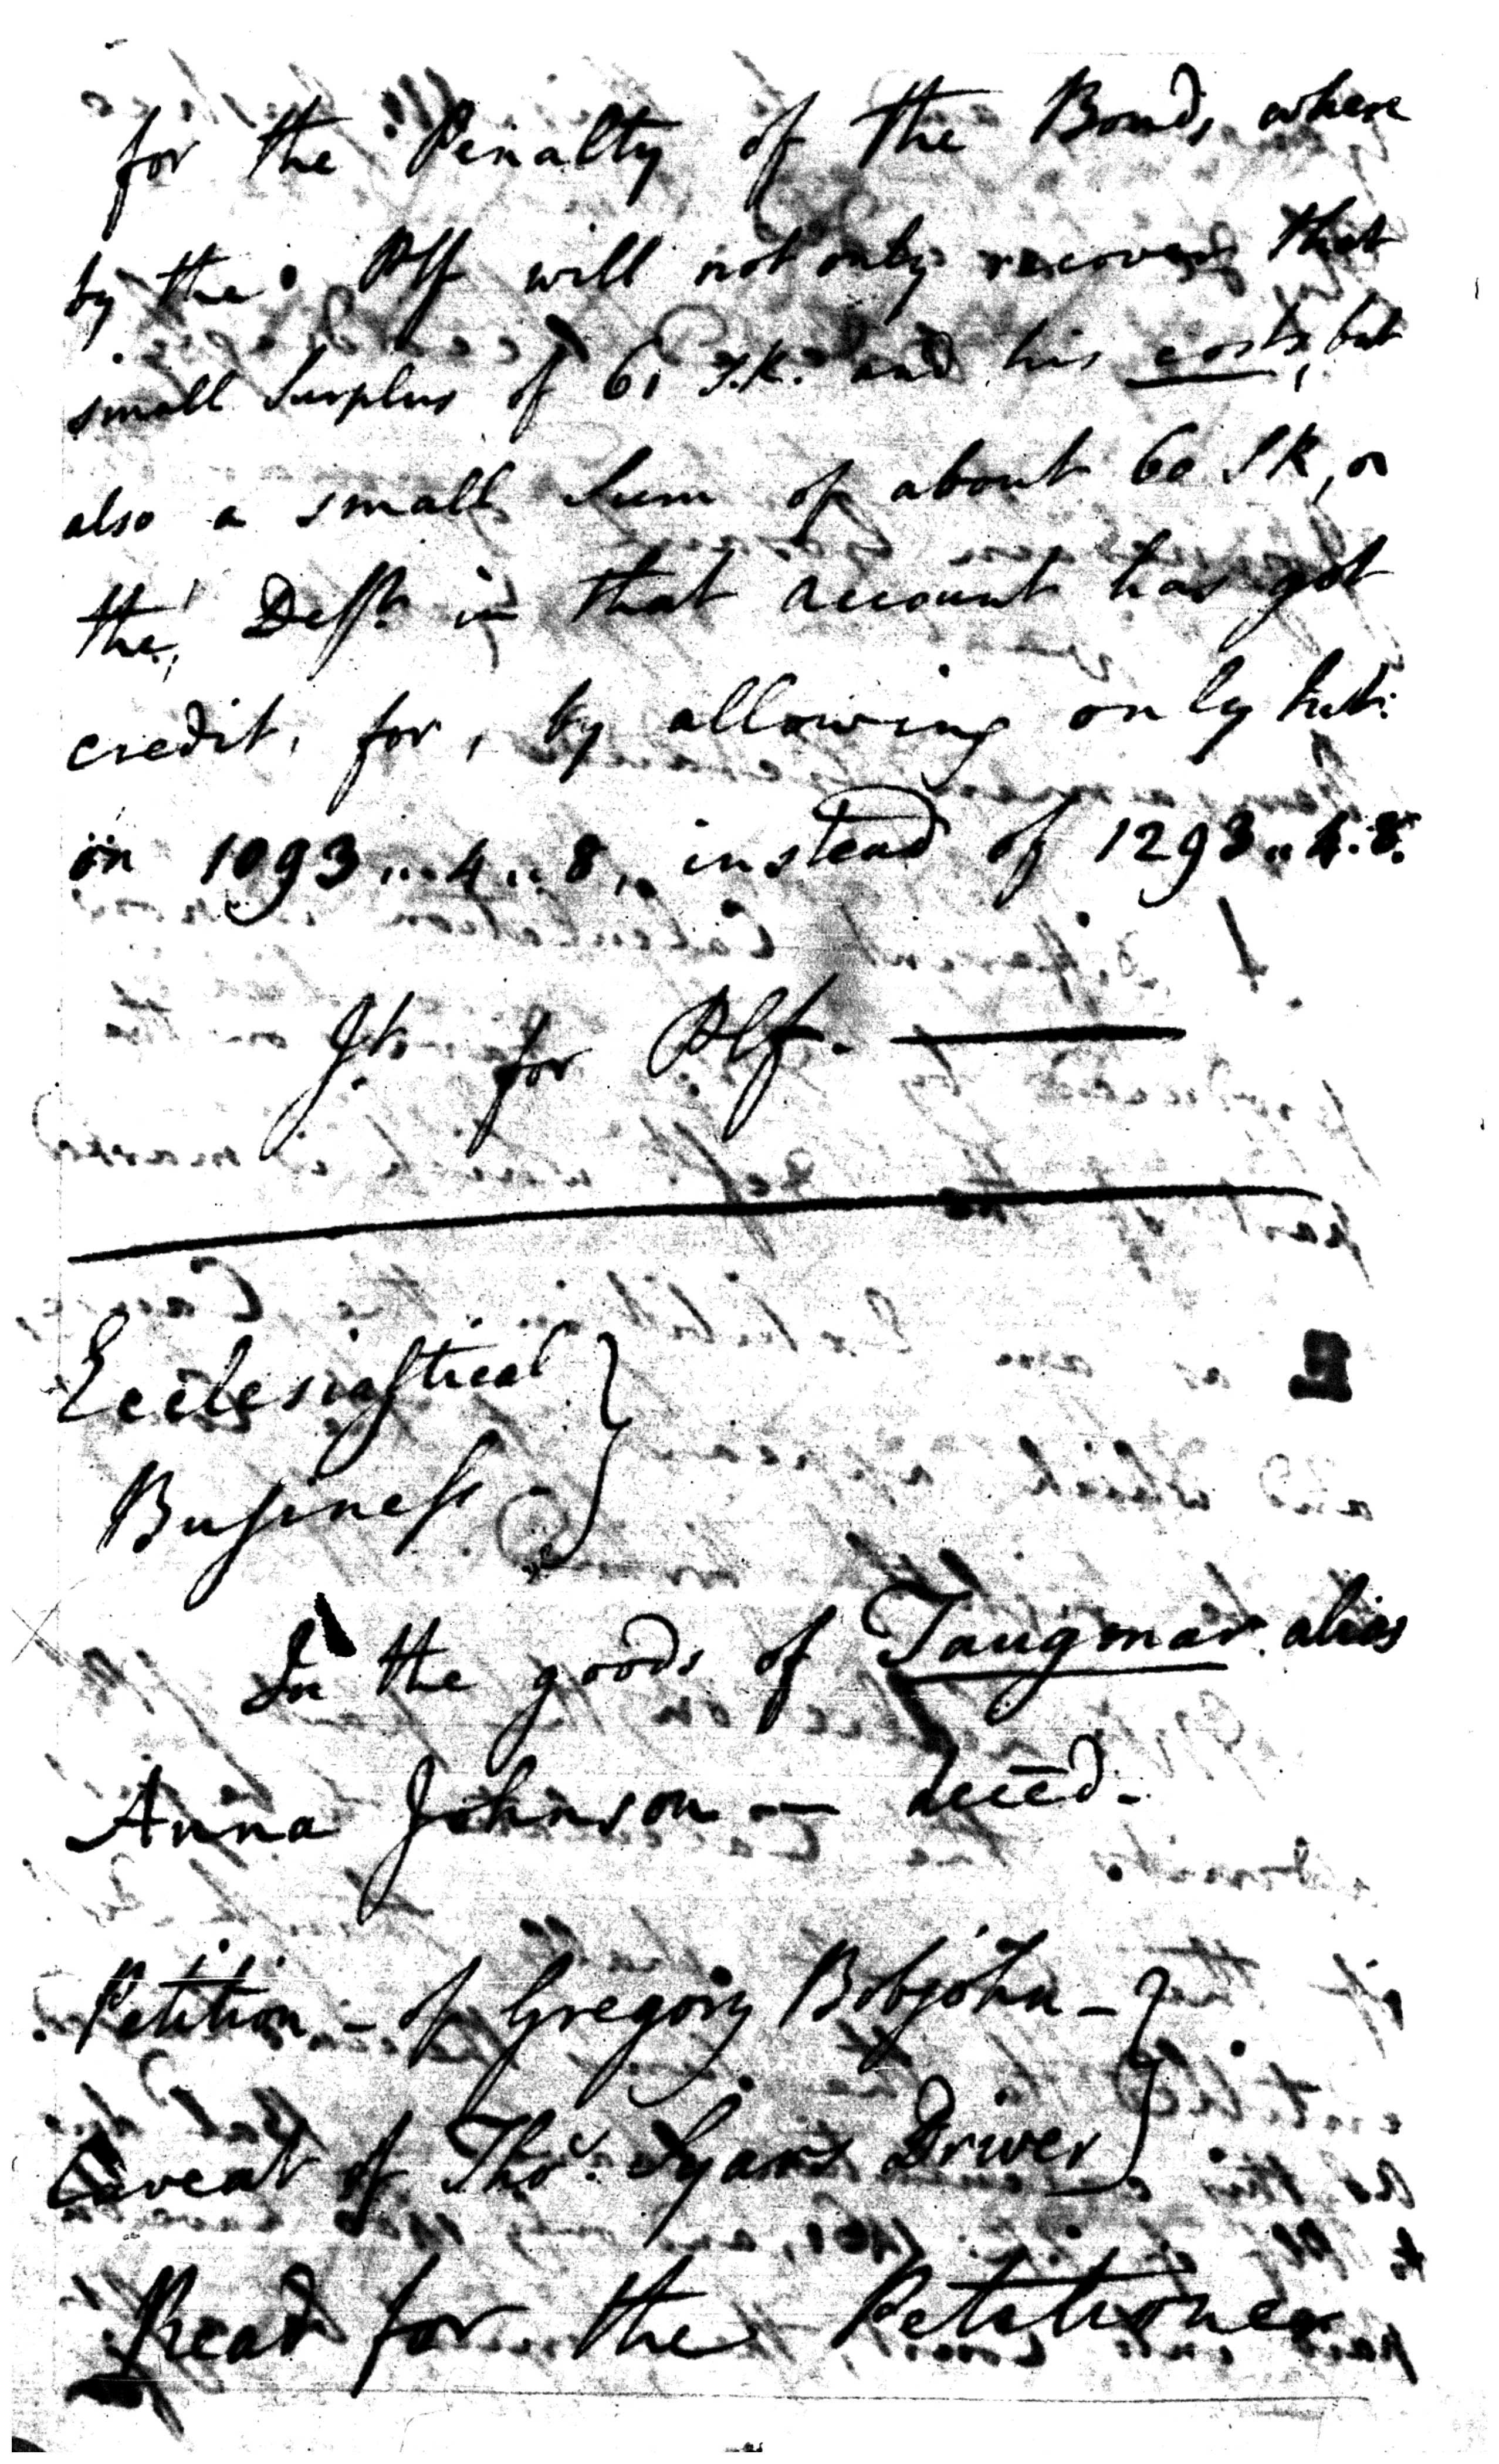 for the Penalty of the Bond, where
by the Plf will not only recover that
small Surplus of 61 S.R. and his costs, but
also a small Sum of about 60 SR, or
the Deft. in that account has got
credit, for, by allowing only Int:
on 1093 .. 4 .. 8, instead of 1293 .. 4 . 8.
Jt. for Plf. —
Ecclesiastical
Business
In the goods of Taugmar alias
Anna Johnson — deced.
Petition - of Gregory Bobjohn -
Caveat of Thos. Syars Driver
Read for the Petitioner